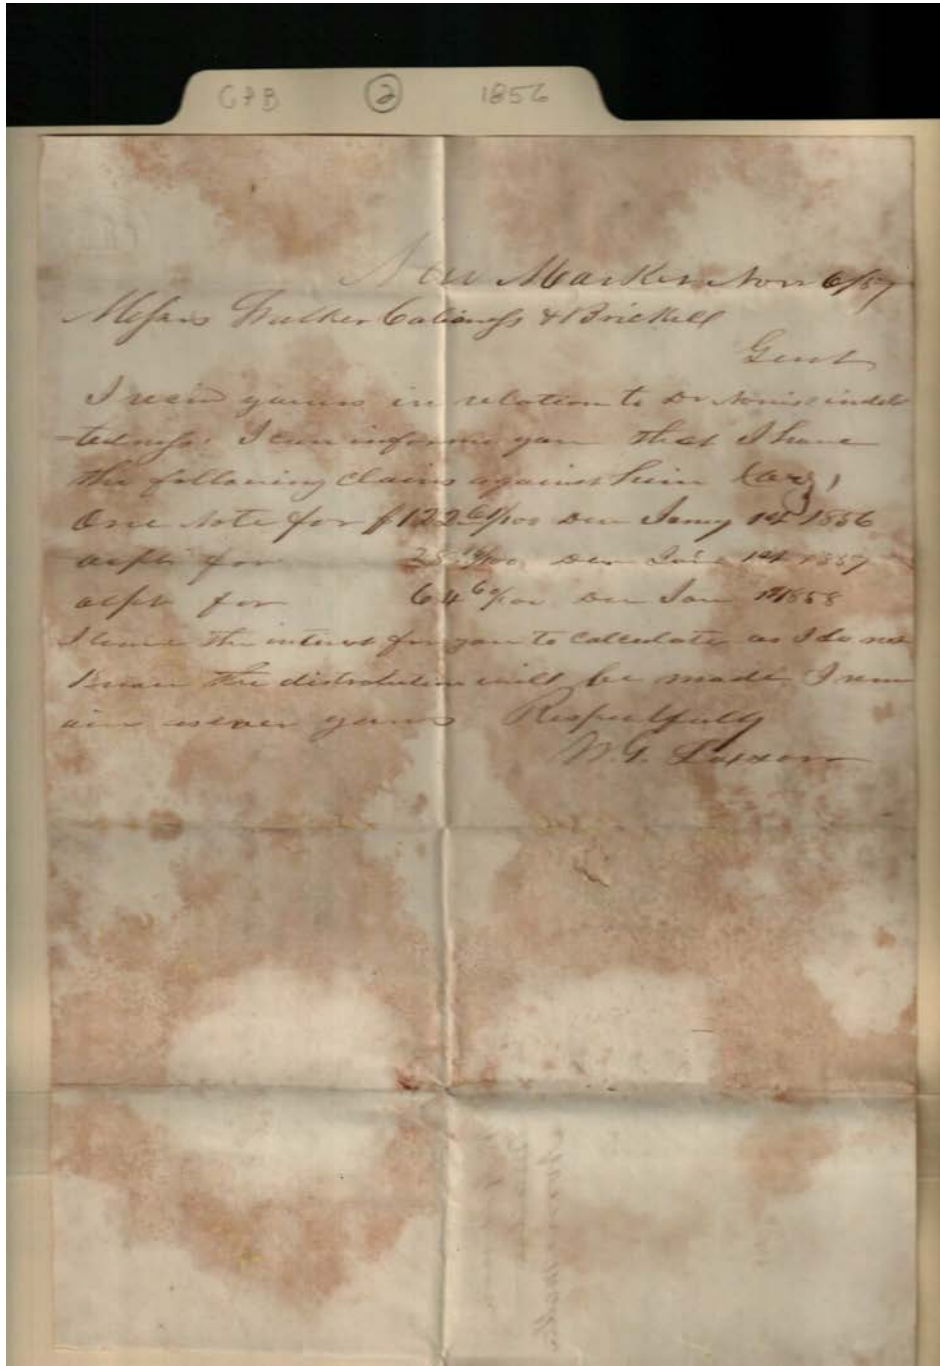 CPB 2 1856
New Market Novr 6/57
Messrs Walker Cabaniss & Brickell
Gent
I recd yours in relation to Dr indeb
tedness. I can informe you that I have
the following claims against him
One Note for $122 61/100 Due Jany 1st 1856
acpt for Due 1st 1857
acpt for 64 Due Jan 1st 1858
I leave the interest for you to calculate as I do not
know the distribution will be made I rem
ain as ever yours Respectfully
W. G.